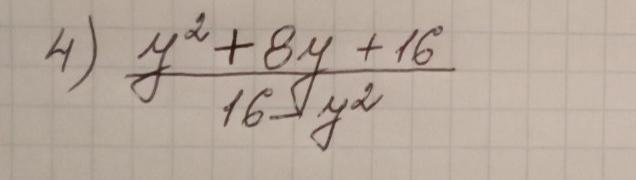 4) y² + 8y + 16
16 - y²